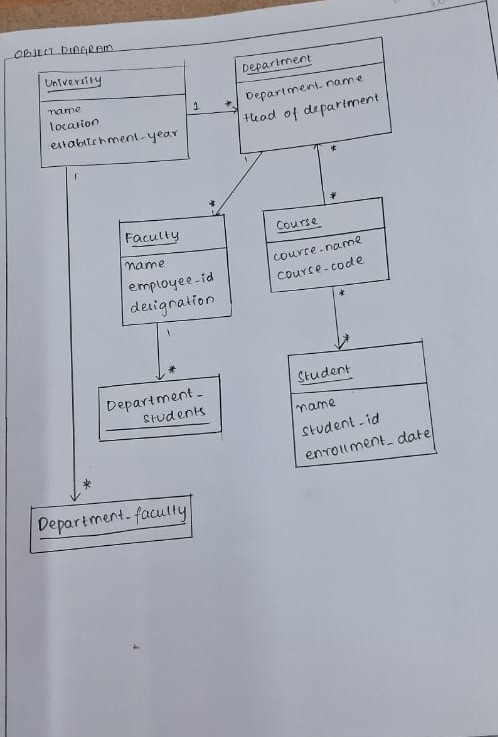 OBJECT DIAGRAM
University
name
location
establishment_year
1
*
Department
Department_name
Head of department
1
*
*
*
1
Faculty
name
employee_id
designation
Course
course_name
course_code
1
*
*
*
Department_
students
Student
name
student_id
enrollment_date
*
Department_faculty